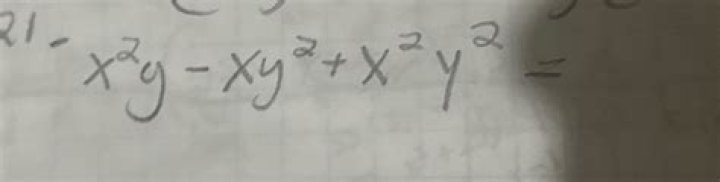 21- x²y - xy² + x²y² =